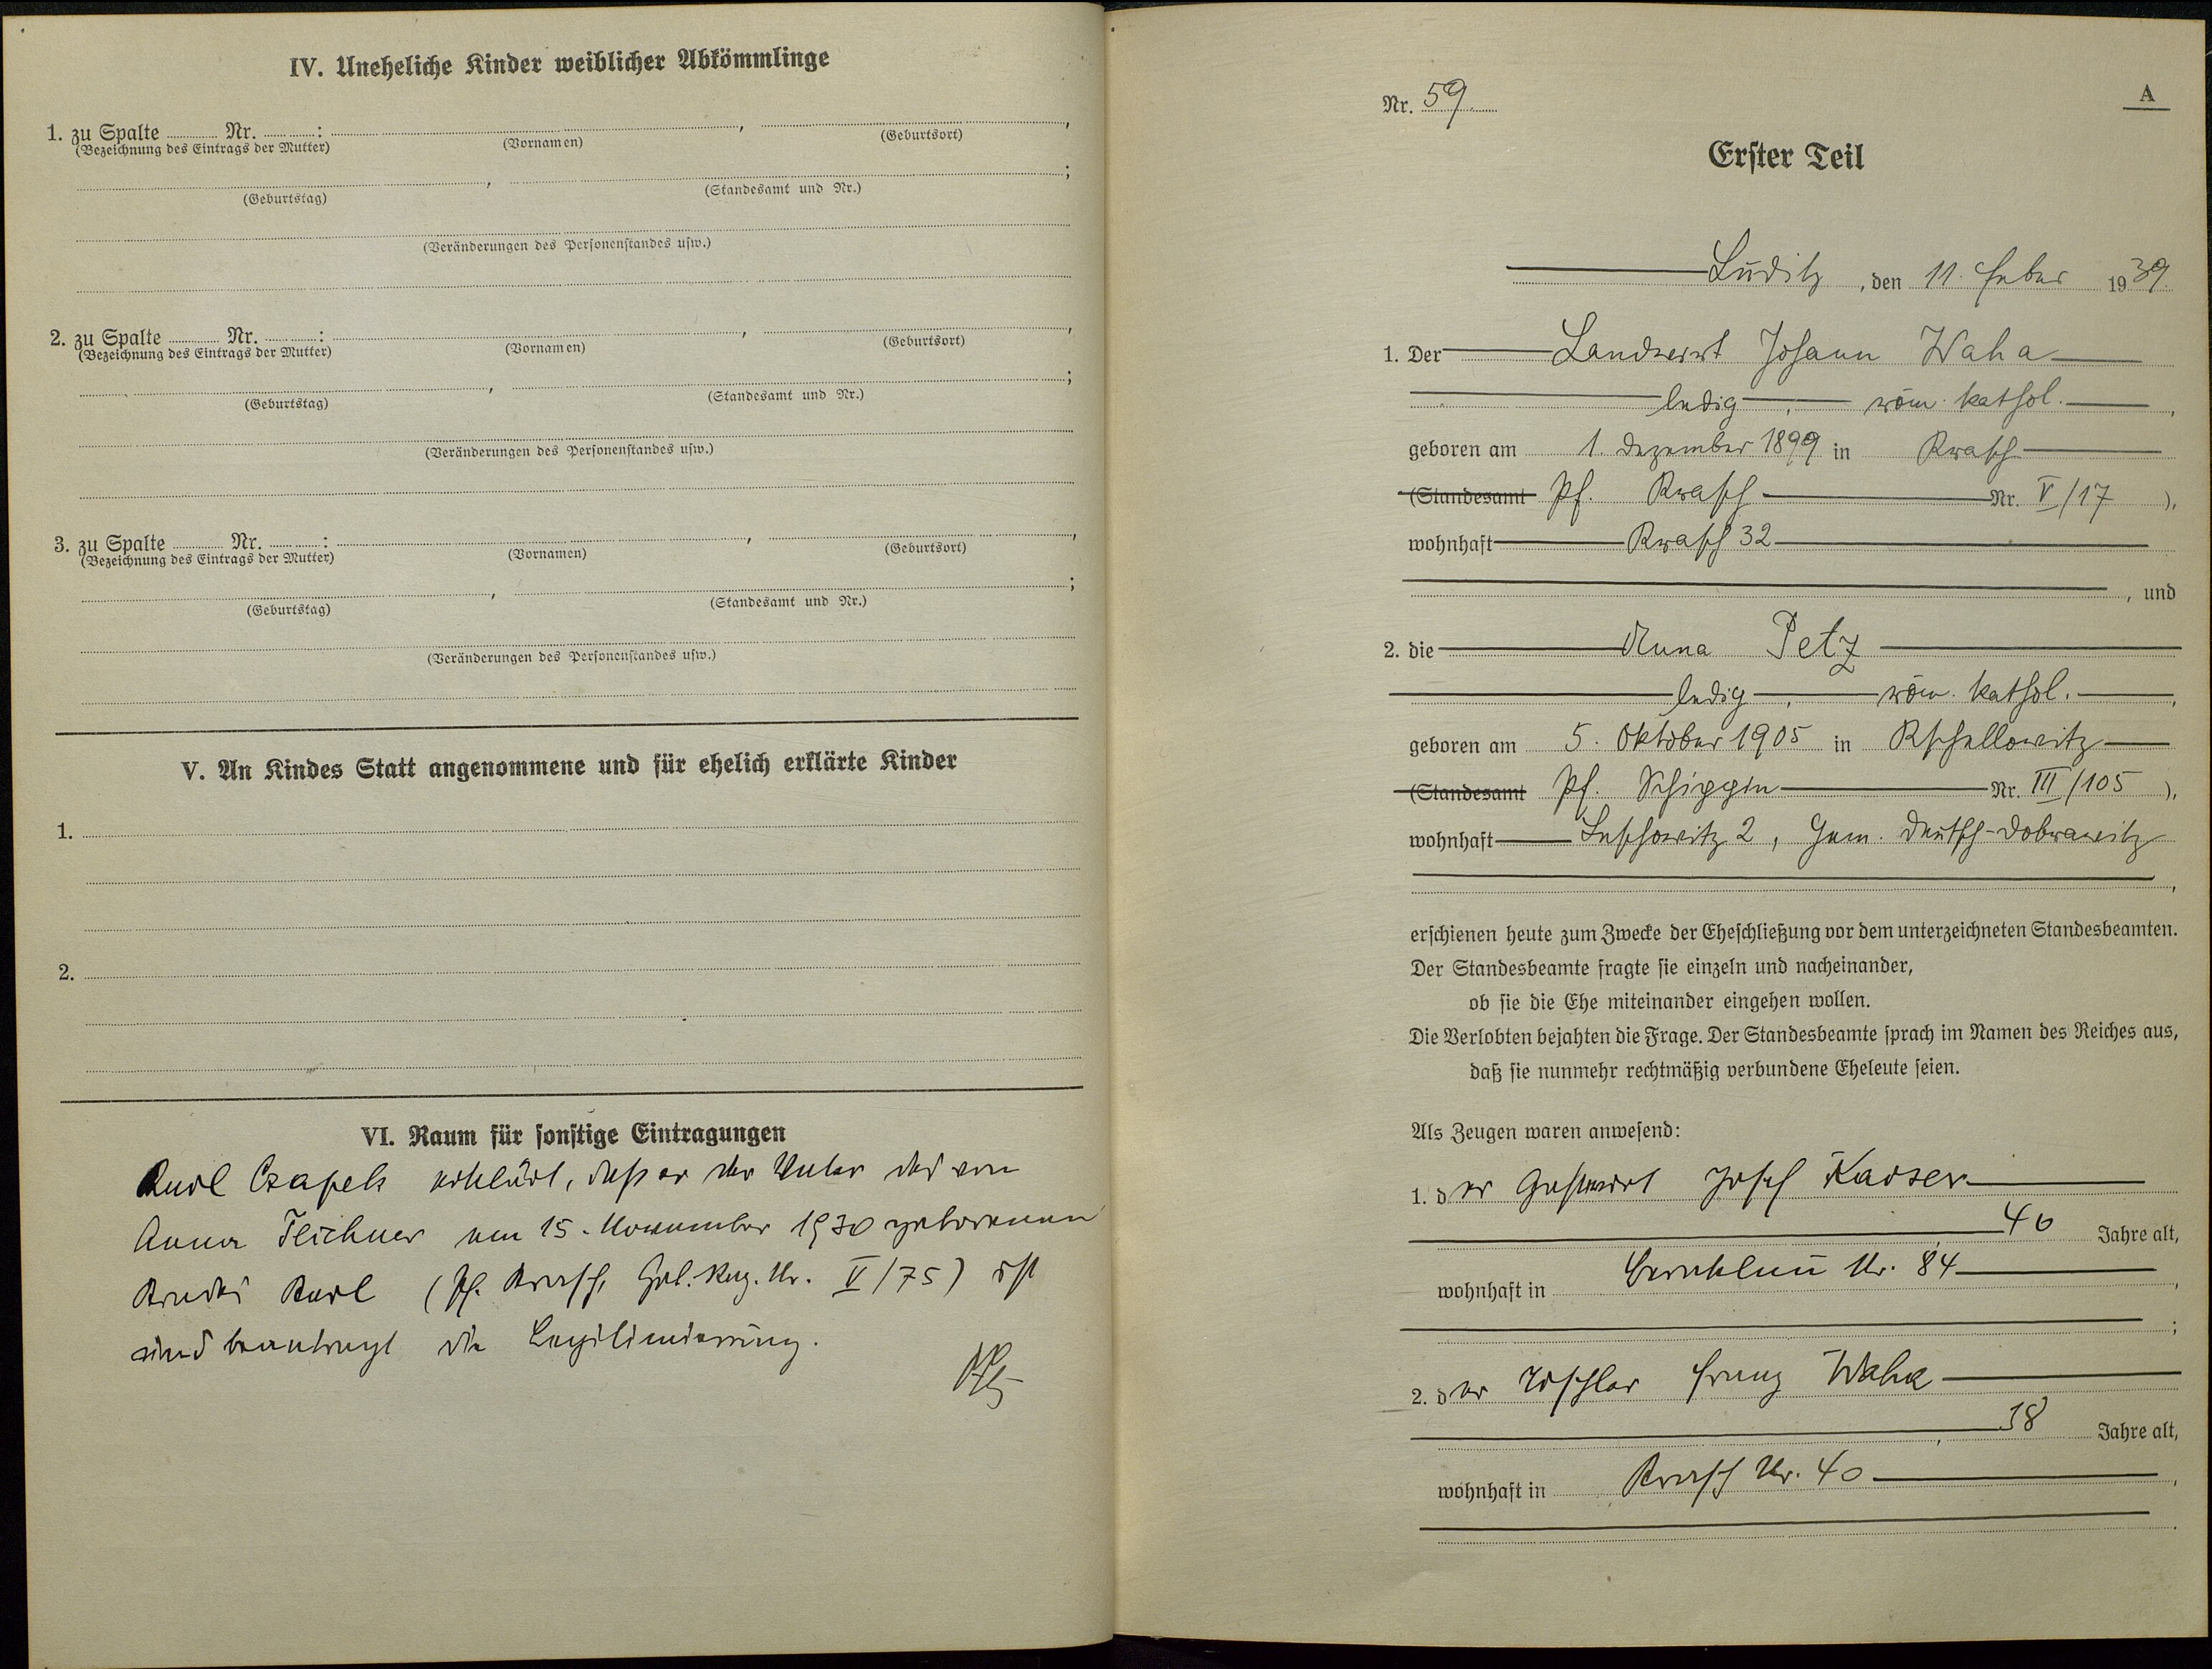 IV. Uneheliche Kinder weiblicher Abkömmlinge
1. zu Spalte Nr. : , ,
(Bezeichnung des Eintrags der Mutter) (Vornamen) (Geburtsort)
, ;
(Geburtstag) (Standesamt und Nr.)
(Veränderungen des Personenstandes usw.)
2. zu Spalte Nr. : , ,
(Bezeichnung des Eintrags der Mutter) (Vornamen) (Geburtsort)
, ;
(Geburtstag) (Standesamt und Nr.)
(Veränderungen des Personenstandes usw.)
3. zu Spalte Nr. : , ,
(Bezeichnung des Eintrags der Mutter) (Vornamen) (Geburtsort)
, ;
(Geburtstag) (Standesamt und Nr.)
(Veränderungen des Personenstandes usw.)
V. An Kindes Statt angenommene und für ehelich erklärte Kinder
1.
2.
VI. Raum für sonstige Eintragungen
Karl Czapek erklärt, daß er der Vater des von
Anna Teichner am 15. November 1930 geborenen
Kindes Karl (Pf. Krasch, Geb. Reg. Nr. V/75) ist
und beantragt die Legitimierung.
Nr. 59. A
Erster Teil
Luditz, den 11. Feber 1939.
1. Der Landwirt Johann Waha
ledig, röm. kathol.,
geboren am 1. Dezember 1899 in Krasch
(Standesamt Pf. Krasch Nr. V/17 ),
wohnhaft Krasch 32
, und
2. die Anna Petz
ledig, röm. kathol.,
geboren am 5. Oktober 1905 in Kschellowitz
(Standesamt Pf. Nr. III/105 ),
wohnhaft Leschowitz 2, Gem. Deutsch-Dobrawitz
,
erschienen heute zum Zwecke der Eheschließung vor dem unterzeichneten Standesbeamten.
Der Standesbeamte fragte sie einzeln und nacheinander,
ob sie die Ehe miteinander eingehen wollen.
Die Verlobten bejahten die Frage. Der Standesbeamte sprach im Namen des Reiches aus,
daß sie nunmehr rechtmäßig verbundene Eheleute seien.
Als Zeugen waren anwesend:
1. der Gastwirt Josef Kaiser
, 40 Jahre alt,
wohnhaft in Nr. 84,
;
2. der Tischler Franz Waha
, 38 Jahre alt,
wohnhaft in Krasch Nr. 40,
.